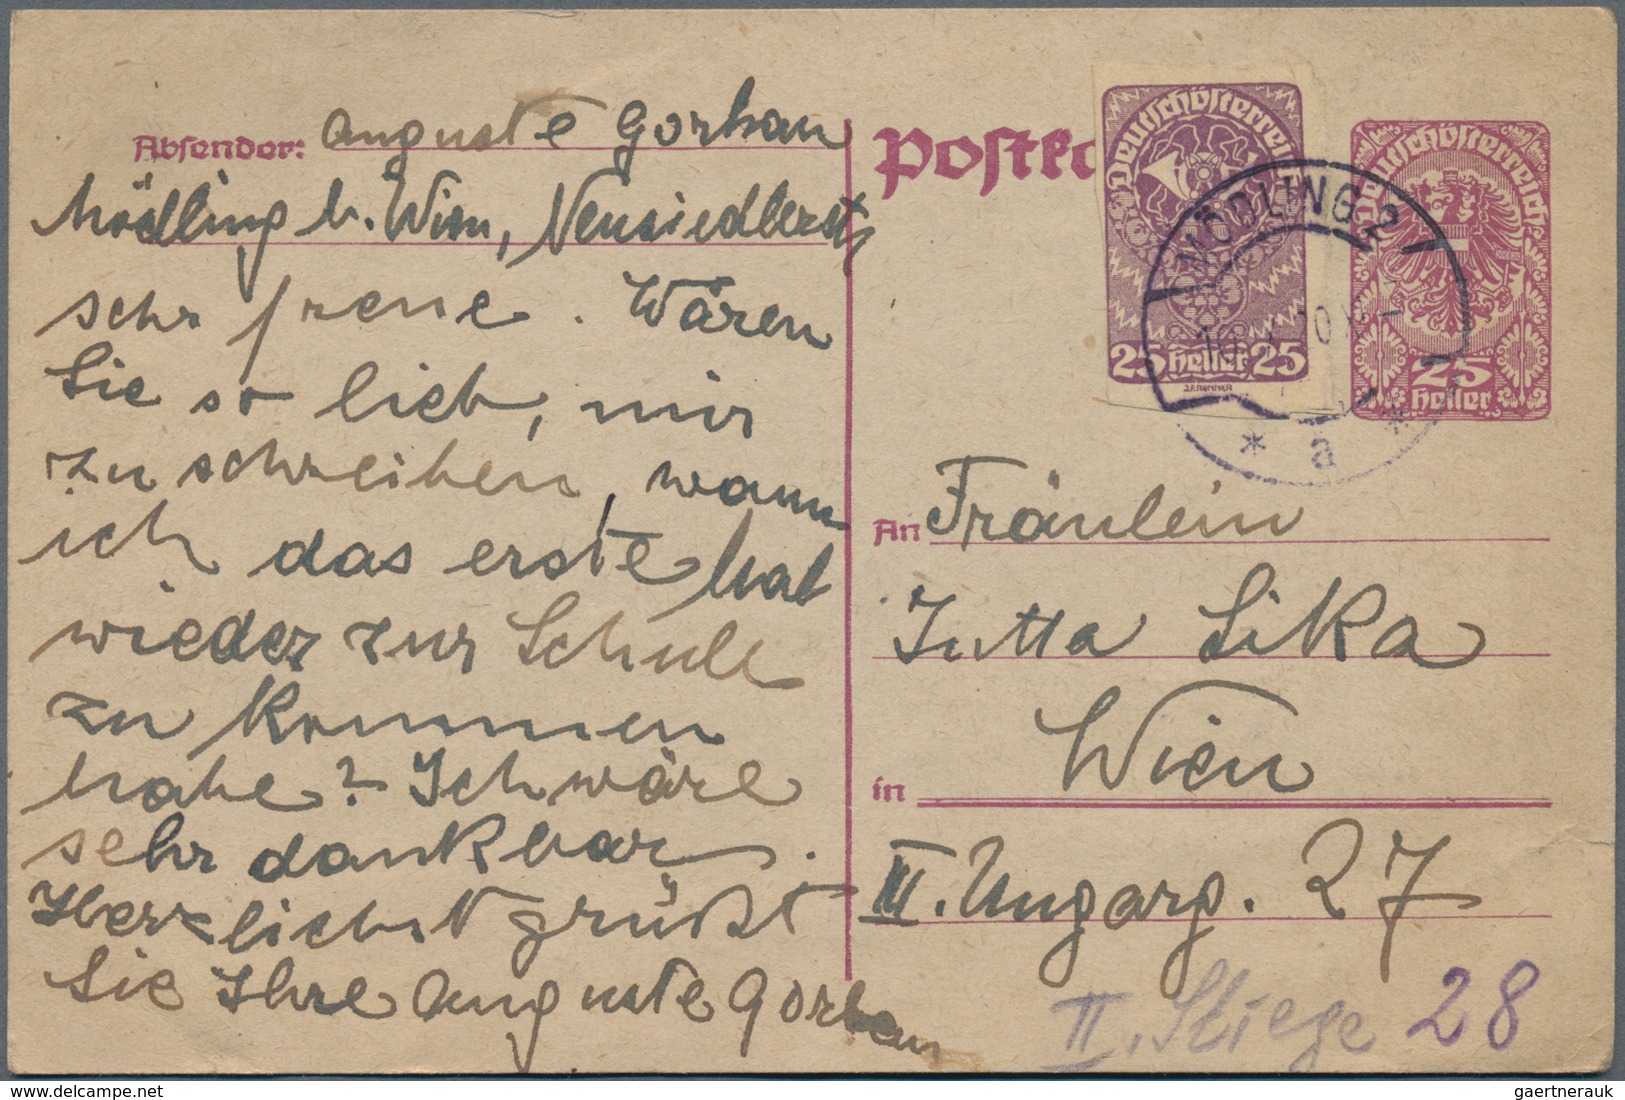 Absender: Auguste Gorban
Mödling b. Wien, Neusiedlerstr
sehr freue. Wären
Sie so lieb, mir
zu schreiben, wann
ich das erste Mal
wieder zur Schule
zu kommen
habe? Ich wäre
sehr dankbar.
Herzlichst grüßt
Sie Ihre Auguste Gorban
Postka
Deutschösterrei
25 Heller 25
J.F.RENNER
Deutschösterreich
25
Heller
MÖDLING 2
* a *
An Fräulein
Jutta Sika
in Wien
III. Ungarg. 27
II. Stiege 28
gaertnerauk